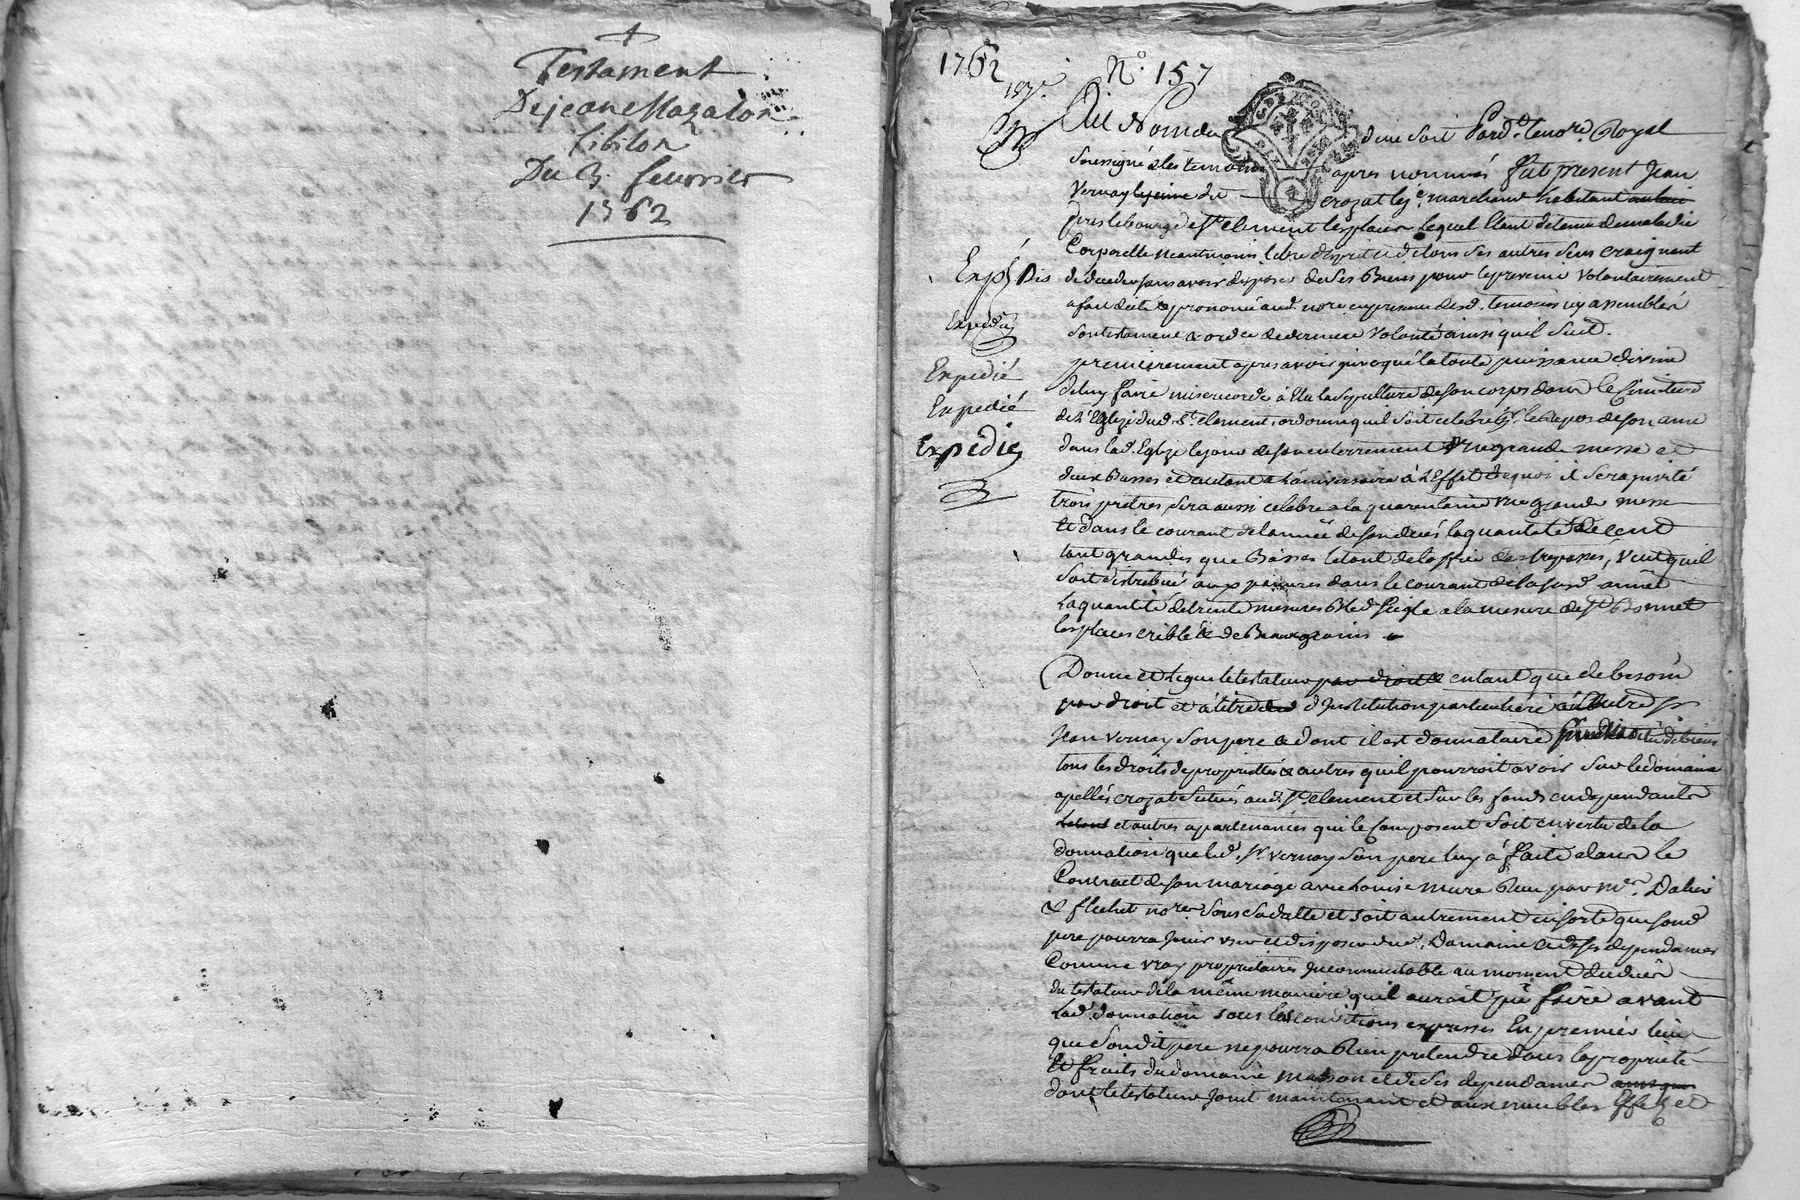 Testament
De jean Mazalon
Du 3. feuvrier
1762
1762
N.o 157
Au Nom de Dieu soit Pard.t le no.re Royal
Soussigné & les temoins apres nommés fut present Jean
Vernay le jeune du crozat le j.e marchand habitant
pres le bourg de S.t Clement les places Lequel Etant detenu de maladie
Corporelle neantmoins libre d'esprit et de tous ses autres sens craignant
de deceder sans avoir disposer de Ses Biens pour le prevenir Volontairement
a fait dicté & prononcé aud. no.re en presence desd. temoins icy assemblés
son testament & ordce de derniere Volonté ainsi quil suit.
premierement apres avoir invoqué la toute puissance divine
de luy faire misericorde à Elu la sepulture de son corps dans le Cimitiere
de l'Eglize dud. S.t Clement, ordonne quil soit celebré p.r le Repos de son ame
dans lad. Eglize le jour de son enterrement Une grande messe et
deux Basses et autant a l'aniversaire à l'Effet de quoi il sera invité
trois pretres sera aussi celebré a la quarantaine une grande messe
Et dans le courant de l'année de son deces la quantité de Cent
tant grandes que Basses le tout de l'office des trepassés, Veut quil
soit distribué aux pauvres dans le courant de la susd. année
la quantité de trente mesures Bled seigle a la mesure de S.t Bonnet
les places criblé & de Beaux grains
Donne et Legue le testateur par droit entant que de besoin
par droit et à titre d'Institution particuliere
Jean Vernay Son pere & dont il est donnataire
tous les droits de proprietté & autres quil pourroit avoir Sur le domaine
apellés crozat Situés aud. S.t Clement et Sur les fonds en dependants
et autres apartenances qui le Composent Soit en vertu de la
donnation que led. S.r Vernay Son pere luy á faite dans le
Contract de son mariage avec Louise mure Recu par M.es Dalier
& flechet no.res Sous sa datte et soit autrement ensorte que sond.
pere pourra Jouir user et disposer dud. Domaine et de ses dependances
Comme vray proprietaire Incommutable au moment du deces
du testateur de la même maniere quil auroit pû faire avant
Lad. donnation sous les conditions expresses En premier lieu
que Sondit pere ne pourra Rien pretendre dans la proprieté
Et fruits du domaine maison et de Ses dependances
dont le testateur Jouit maintenant et aux meubles Effets et
Expedié
Expedié
Expedié
Expedié